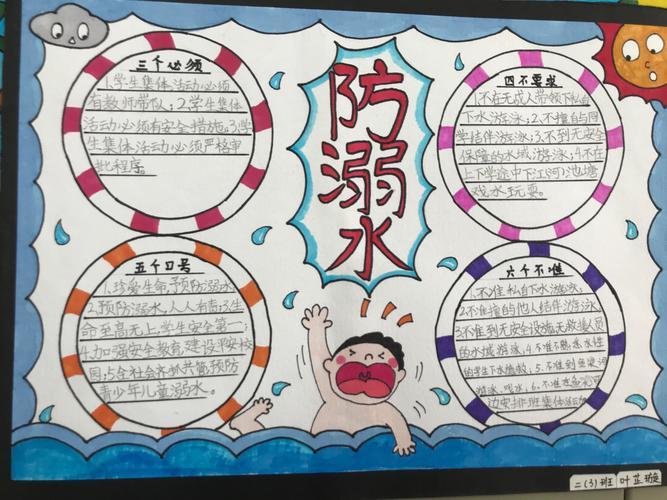 防溺水
三个必须
1.学生集体活动必须
有教师带队;2学生集体
活动必须有安全措施;3学
生集体活动必须严格审
批程序。
四不要求
1.不在无成人带领下私自
下水游泳;2.不擅自与同
学结伴游泳;3.不到无安全
保障的水域游泳;4.不在
上下学途中下江(河)池塘
戏水玩耍。
五个口号
1.珍爱生命,预防溺水
2.预防溺水,人人有责;3.生
命至高无上,学生安全第一;
4.加强安全教育,建设平安校
园;5.全社会齐抓共管预防
青少年儿童溺水。
六个不准
1.不准私自下水游泳;
2.不准擅自与他人结伴游泳
3不准到无安全设施无救援人员
的水域游泳;4.不准不熟悉水性
的学生下水施救;5.不准到鱼
游泳、
边
集体活动
二(3)班 叶芷璇